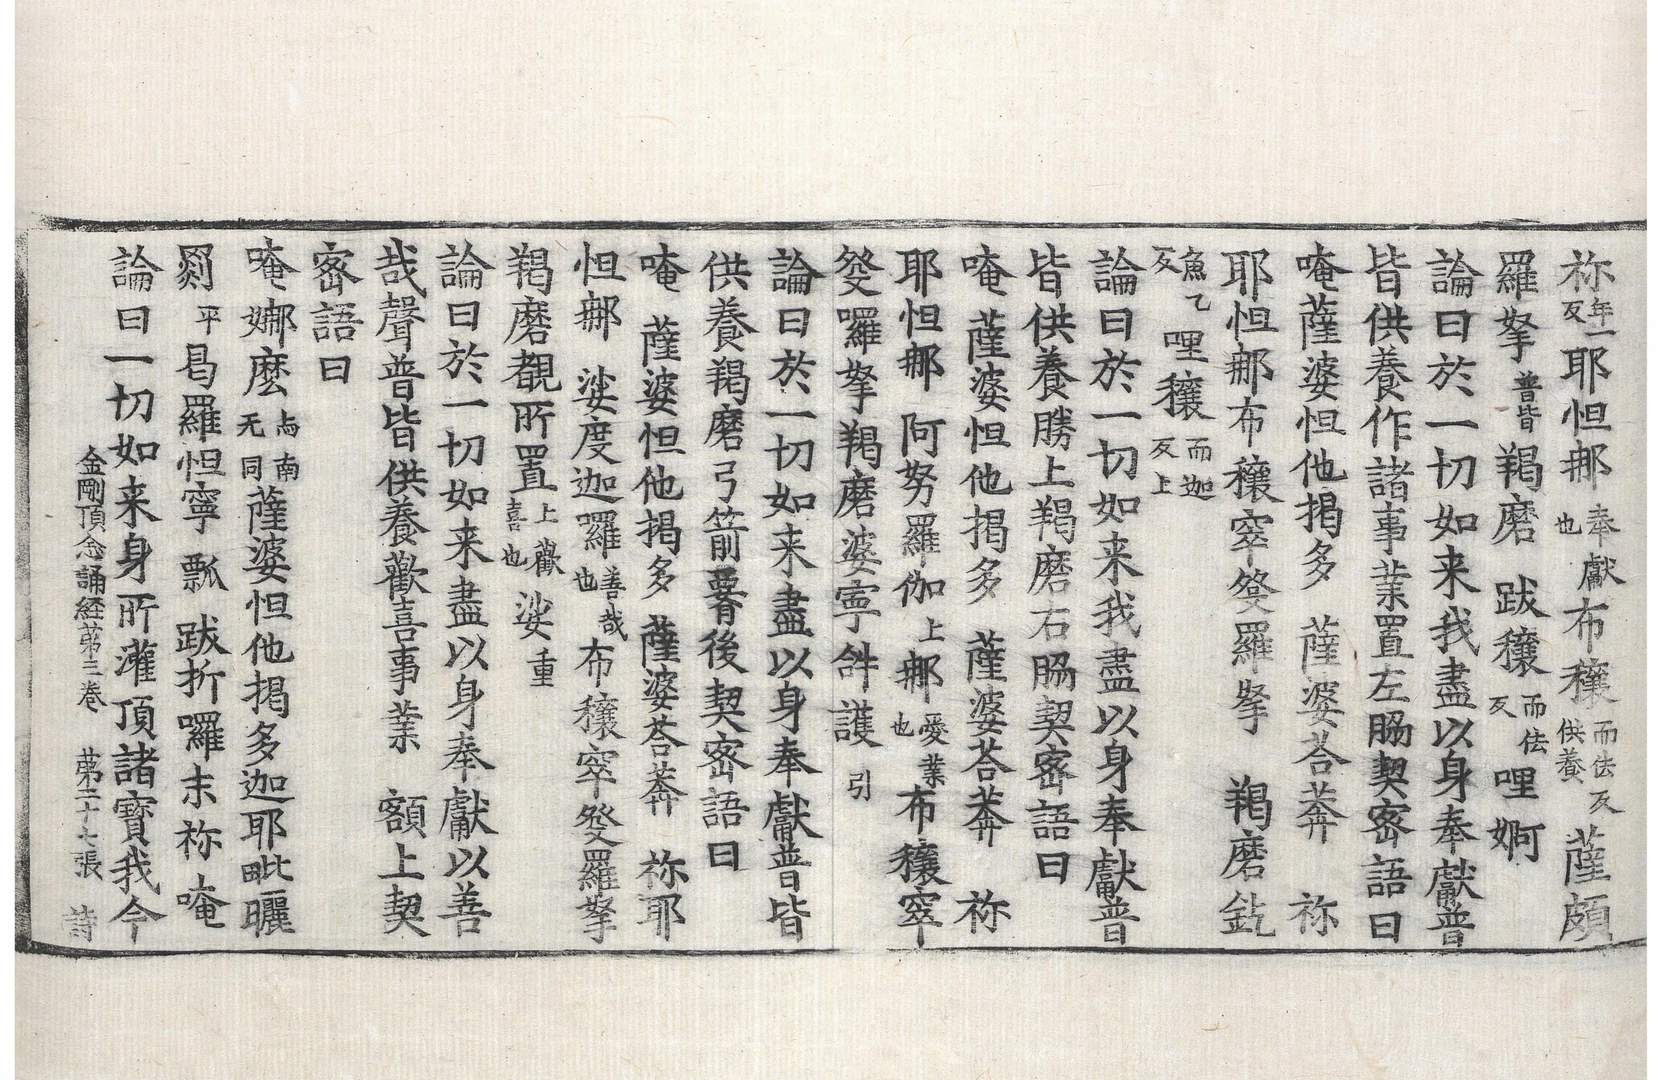 祢年一反耶怛那奉獻也布穰而佉反供養薩頗
羅拏普皆羯磨 跋穰而佉反哩婀
論曰於一切如来我盡以身奉獻普
皆供養作諸事業置左脇契密語曰
唵薩婆怛他揭多 薩婆荅莾 祢
耶怛那布穰穼發羅拏 羯磨釳
魚乞反哩穰而迦反上
論曰於一切如来我盡以身奉獻普
皆供養勝上羯磨右脇契密語曰
唵 薩婆怛他揭多 薩婆荅莾 祢
耶怛那 阿努羅伽上那愛業也布穰穼
發囉拏羯磨婆寧斜護引
論曰於一切如来盡以身奉獻普皆
供養羯磨弓箭脊後契密語曰
唵 薩婆怛他揭多 薩婆荅莾 祢耶
怛那 娑度迦囉善哉也布穰穼發羅拏
羯磨覩所置上歡喜也娑重
論曰於一切如来盡以身奉獻以善
哉聲普皆供養歡喜事業 額上契
密語曰
唵娜麽上南无同薩婆怛他揭多迦耶毗曬
剡平曷羅怛寧 瓢 跋折囉末祢唵
論曰一切如来身所灌頂諸寶我今
金剛頂念誦経苐三巻 苐二十七張 詩